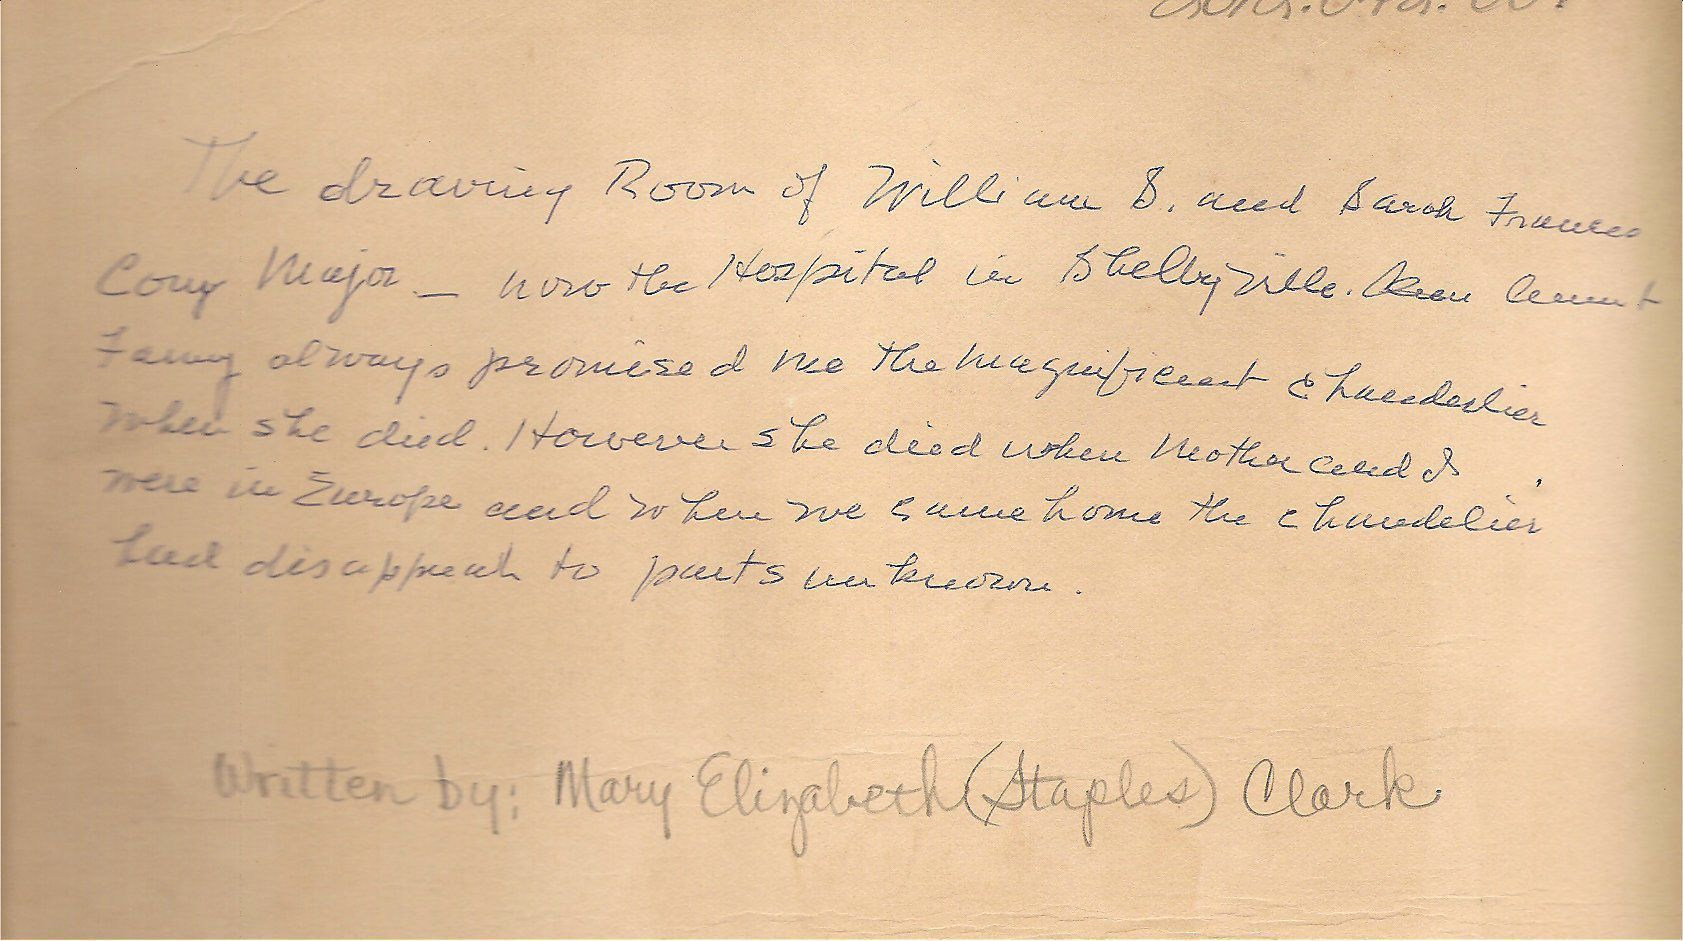 The drawing Room of William S. and Sarah Frances
Major — now the Hospital in Shelbyville. Aunt
Fanny always promised me the magnificent chandeslier
when she died. However she died when Mother and I
were in Europe and when we came home the chandelier
had disappeah to parts unknown.
Written by: Mary Elizabeth (Staples) Clark